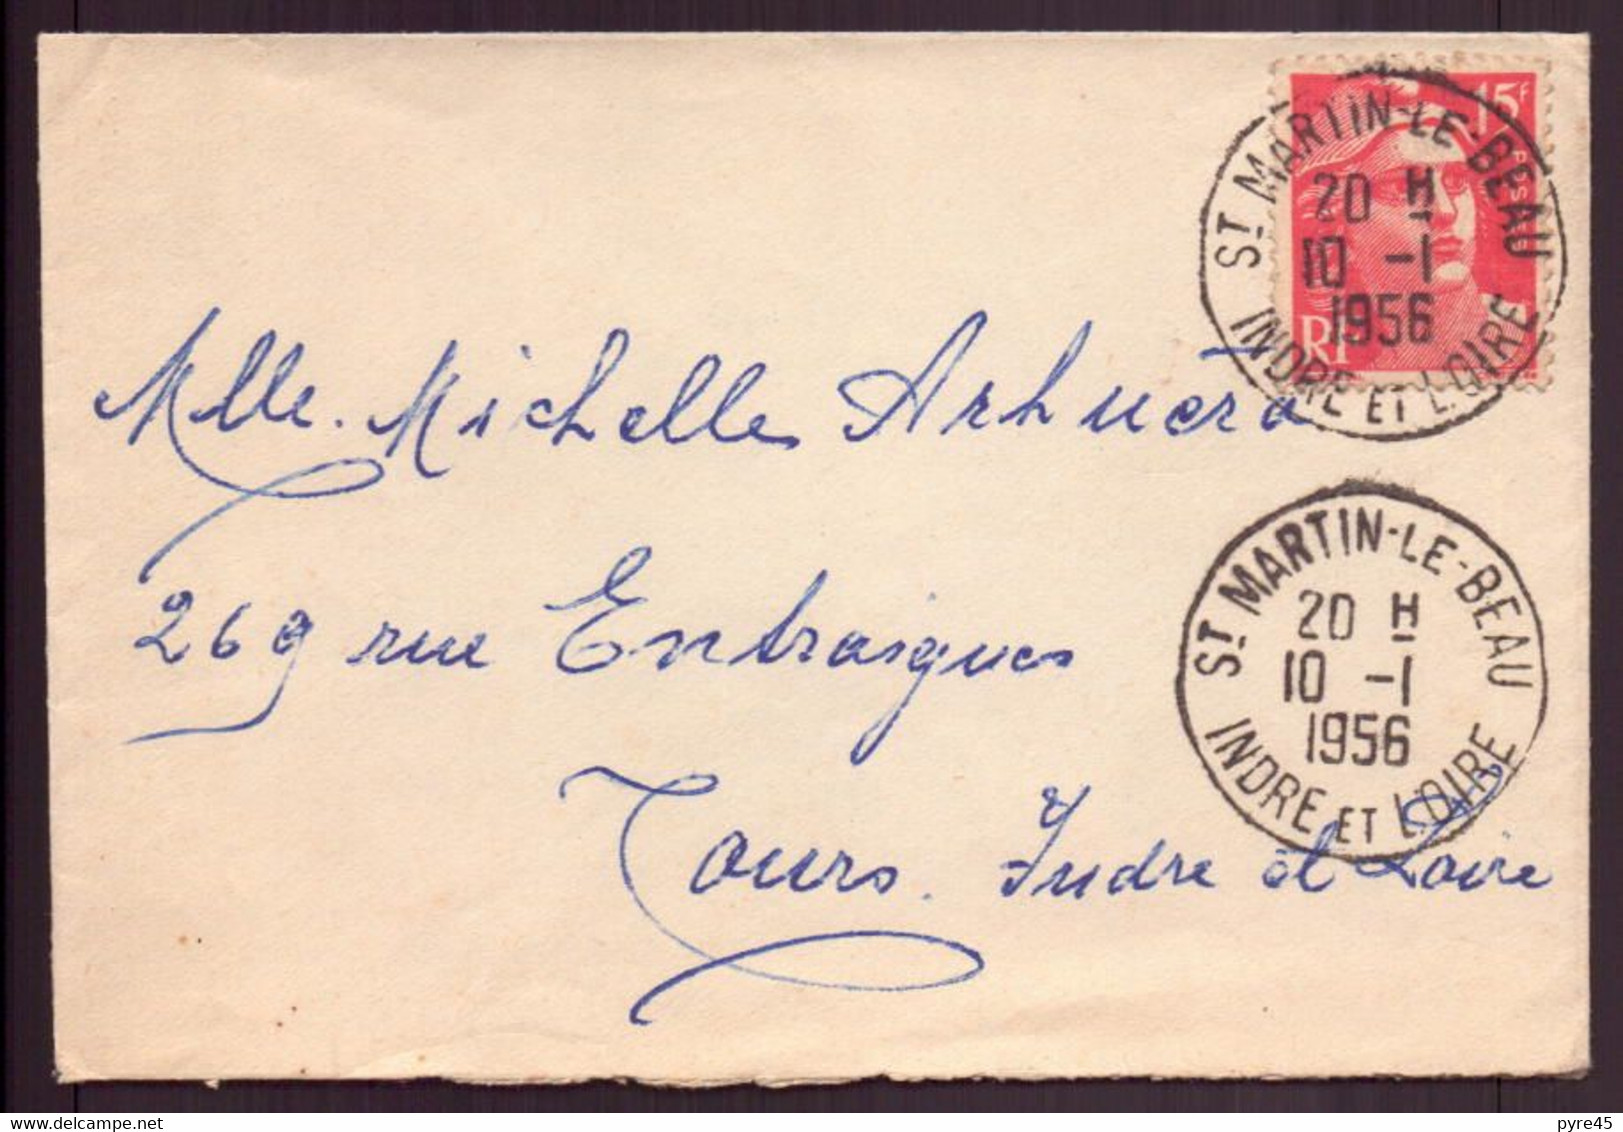 15F
POSTES
RF
ST MARTIN-LE-BEAU
20 H
10 -1
1956
INDRE ET LOIRE
Mlle. Michelle Arhuero
ST MARTIN-LE-BEAU
20 H
10 -1
1956
INDRE ET LOIRE
269 rue Entraigues
Tours. Indre et Loire
delcampe.net
pyre45